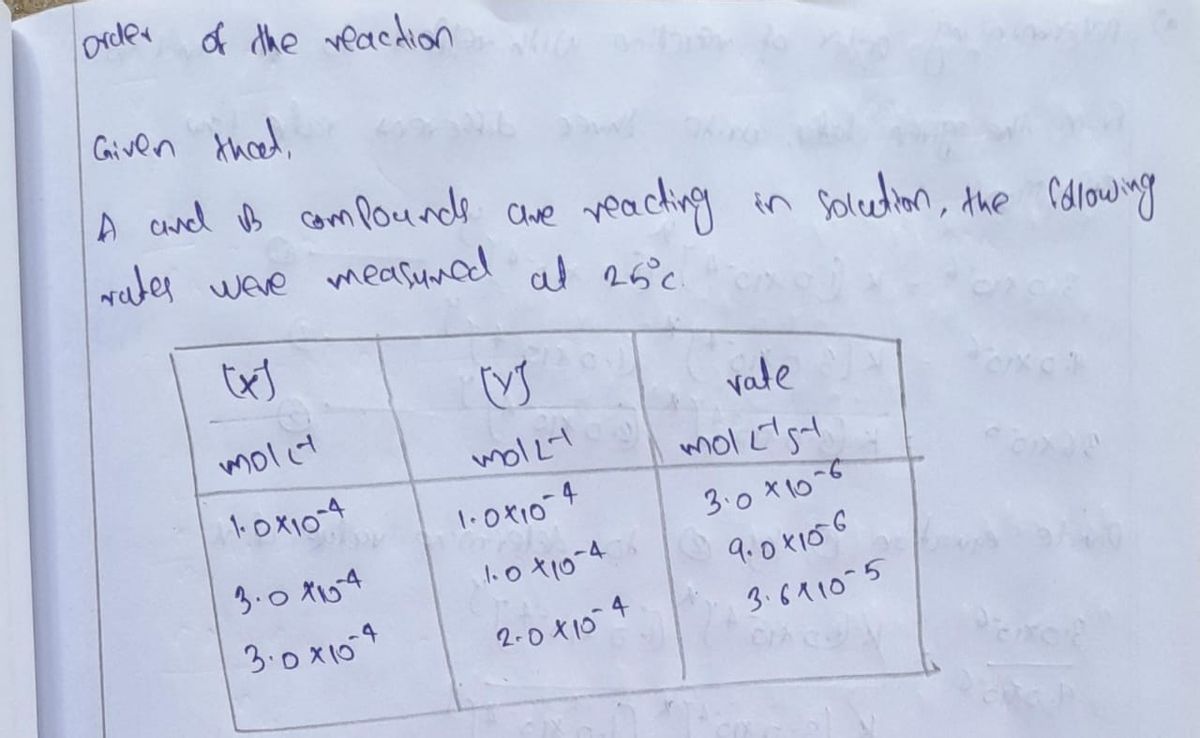 order of the reaction
Given that,
A and B compounds are reacting in solution, the following
rates were measured at 25°c.
[x] [Y] rate
mol L⁻¹ mol L⁻¹ mol L⁻¹ s⁻¹
1.0×10⁻⁴ 1.0×10⁻⁴ 3.0×10⁻⁶
3.0×10⁻⁴ 1.0×10⁻⁴ 9.0×10⁻⁶
3.0×10⁻⁴ 2.0×10⁻⁴ 3.6×10⁻⁵